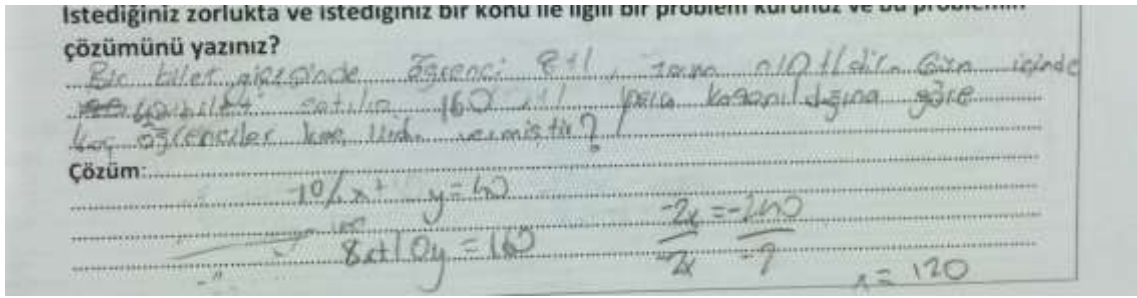 İstediğiniz zorlukta ve istediğiniz bir konu ile ilgili bir problem kurunuz ve bu problemin
çözümünü yazınız?
Bir bilet gişesinde öğrenci 8 tl, tam 10 tl dir. Gün içinde
satılıp 160 tl para kazanıldığına göre
kaç öğrenciler kaç vermiştir?
Çözüm:
-10/ x + y = 40
8x+10y = 160
-2x = -240
-2x -2
x = 120